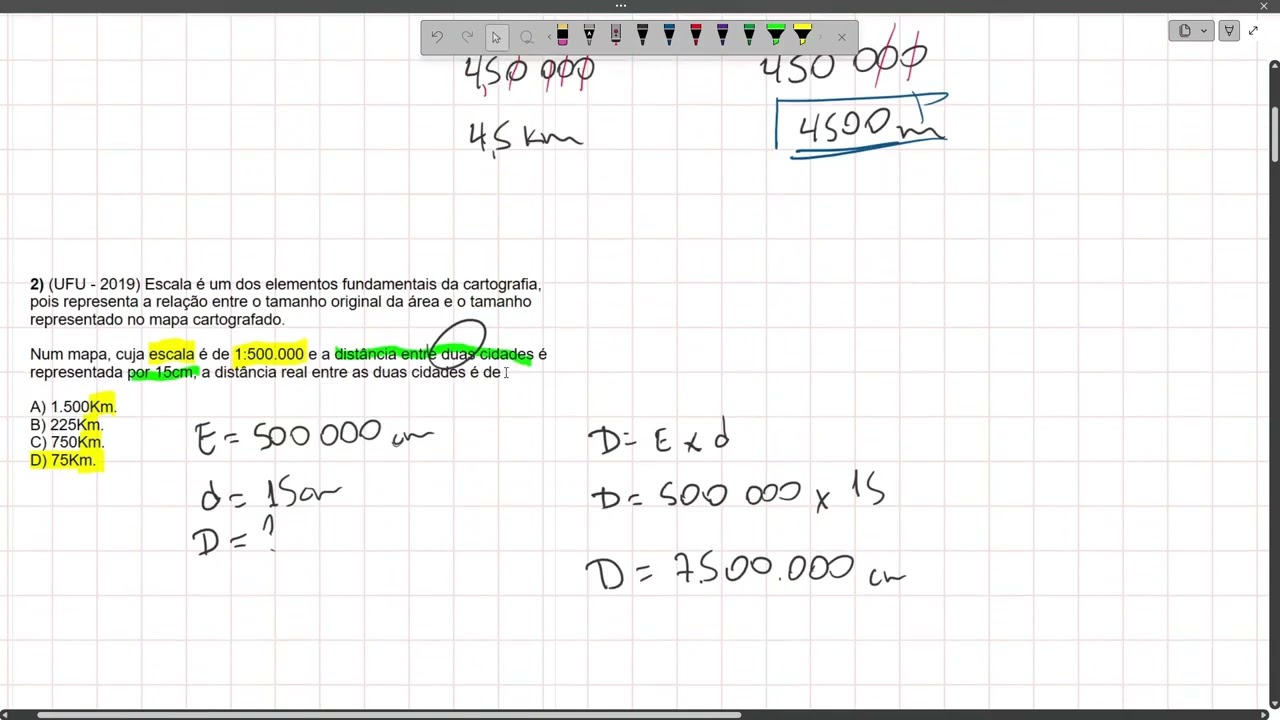 4,50 000
450 000
4,5 km
4500 m
2) (UFU - 2019) Escala é um dos elementos fundamentais da cartografia,
pois representa a relação entre o tamanho original da área e o tamanho
representado no mapa cartografado.
Num mapa, cuja escala é de 1:500.000 e a distância entre duas cidades é
representada por 15cm, a distância real entre as duas cidades é de
A) 1.500Km.
B) 225Km.
C) 750Km.
D) 75Km.
E = 500 000 cm
d = 15cm
D = ?
D = E x d
D = 500 000 x 15
D = 7.500.000 cm